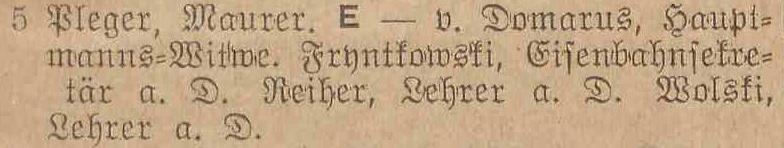 5 Pleger, Maurer. E — v. Domarus, Haupt-
manns-Witwe. Fryntkowski, Eisenbahnsekre-
tär a. D. Reiher, Lehrer a. D. Wolski,
Lehrer a. D.